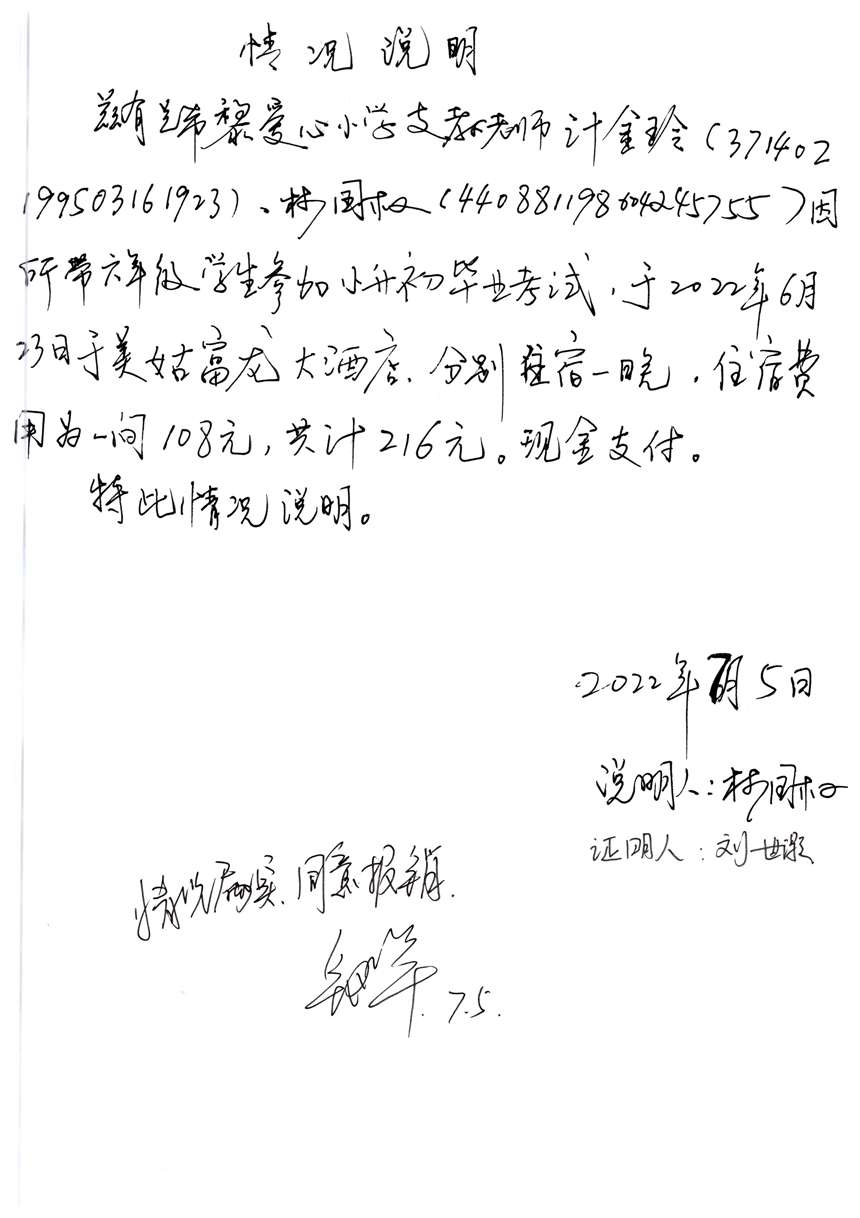 情况说明
兹有兰布黎爱心小学支教老师计金玲(371402
199503161923)、林国权(440881198604245755)因
所带六年级学生参加小升初毕业考试,于2022年6月
23日于美姑富龙大酒店、分别住宿一晚,住宿费
用为一间108元,共计216元。现金支付。
特此情况说明。
2022年7月5日
说明人:林国权
证明人:刘世
情况属实、同意报销.
7.5.